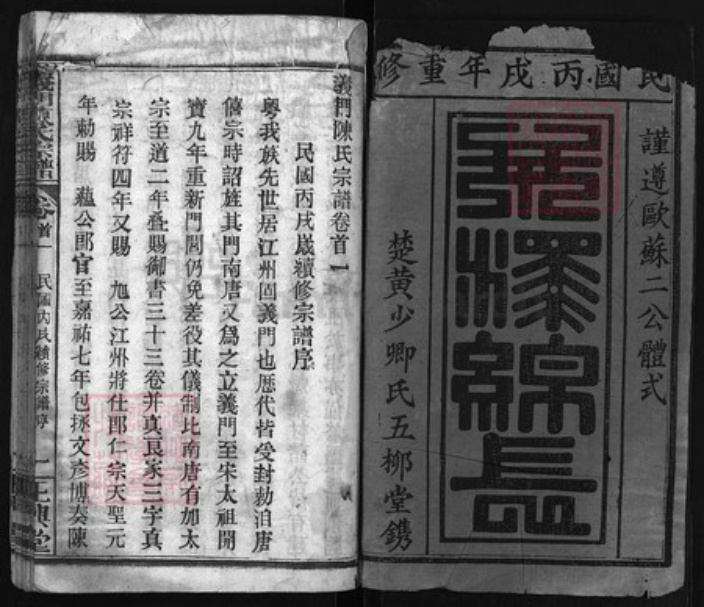 民國丙戌年重修
謹遵歐蘇二公體式
澤綿長
楚黃少卿氏五柳堂鐫
義門陳氏宗譜卷首一
民國丙戌歲續修宗譜序
粵我族先世居江州固義門也歷代皆受封勅洎唐
僖宗時詔旌其門南唐又為之立義門至宋太祖開
寶九年重新門閭仍免差役其儀制比南唐有加太
宗至道二年叠賜御書三十三卷并真良家三字真
宗祥符四年又賜 旭公江州將仕郎仁宗天聖元
年勅賜 蘊公郎官至嘉祐七年包拯文彥博奏陳
義門陳氏宗譜
卷首一
民國丙戌續修宗譜序
一